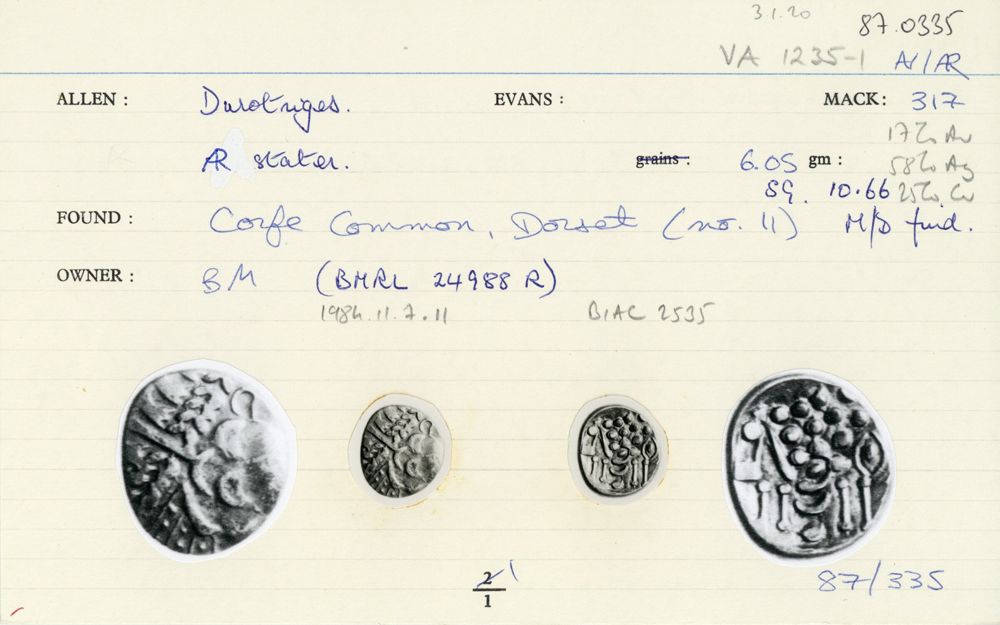 3.1.20
87.0335
VA 1235-1 AV/AR
ALLEN : Durotriges. EVANS : MACK: 317
17% Au
AR stater. grains : 6.05 gm : 58% Ag
SG. 10.66 25% Cu
FOUND : Corfe Common, Dorset (no. 11) M/D find.
OWNER : BM (BMRL 24988 R)
1984.11.7.11 BIAC 2535
2 1
1
87/335